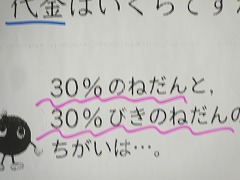 代金はいくらですか
30%のねだんと,
30%びきのねだんの
ちがいは…。